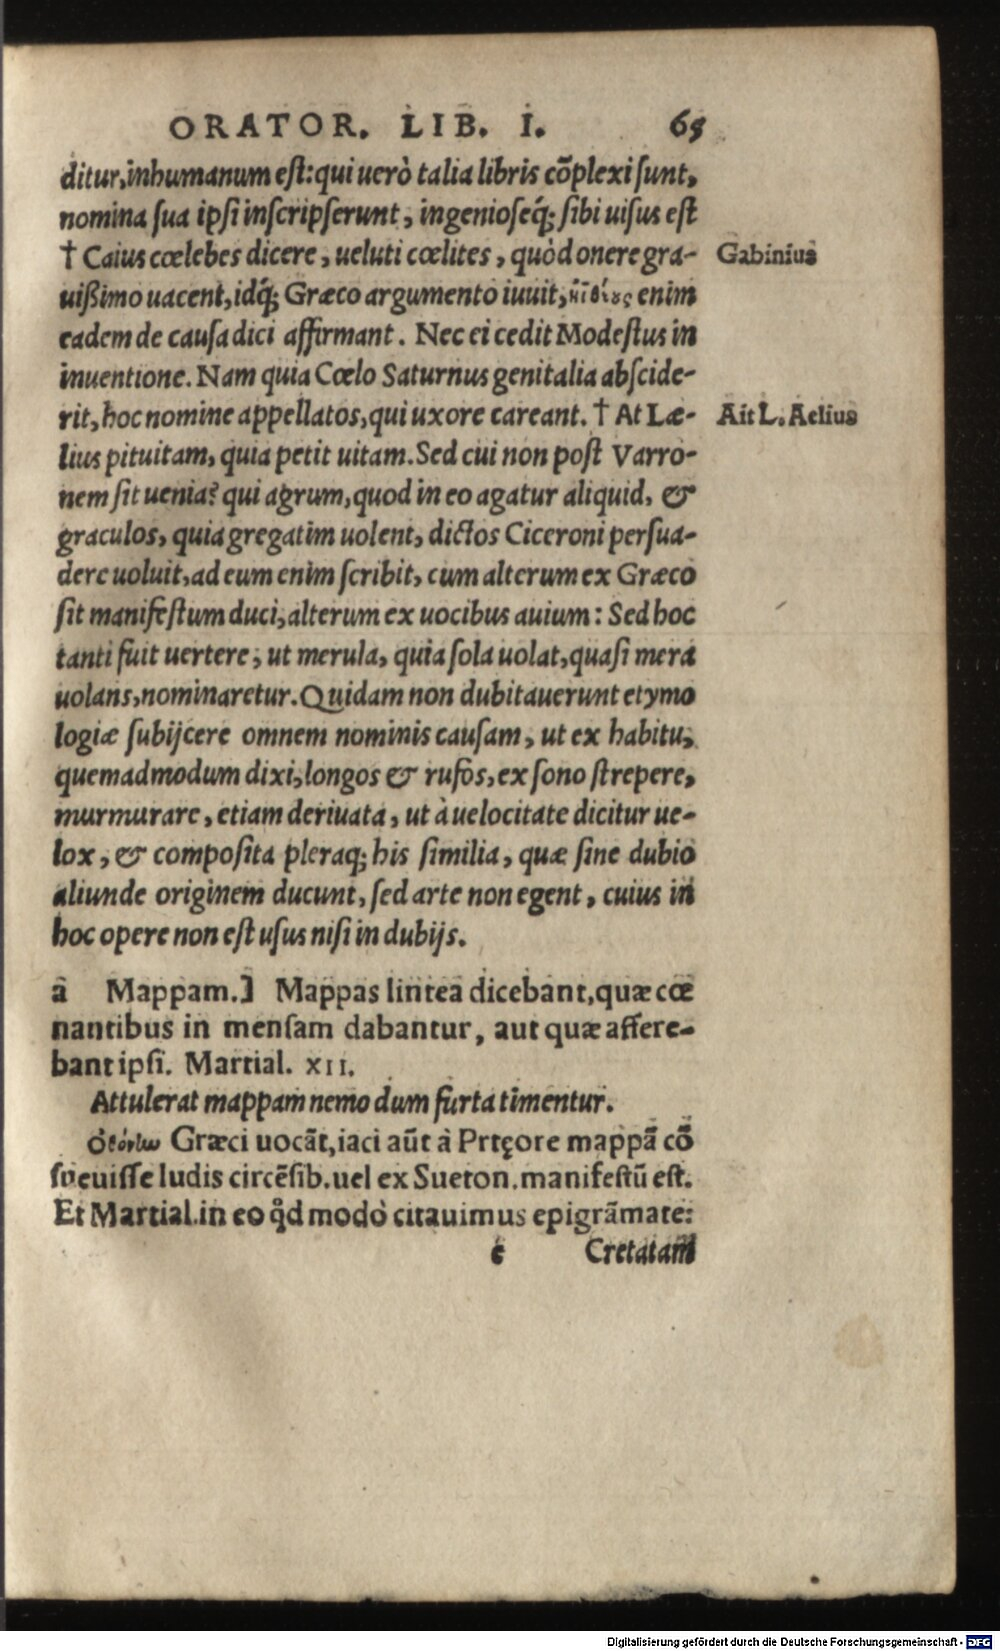 ORATOR. LIB. I. 65
ditur, inhumanum est: qui uerò talia libris cõplexi sunt,
nomina sua ipsi inscripserunt, ingenioseq́; sibi uisus est
† Caius cœlebes dicere, ueluti cœlites, quòd onere gra-
Gabinius
uißimo uacent, idq́; Græco argumento iuuit, enim
eadem de causa dici affirmant. Nec ei cedit Modestus in
inuentione. Nam quia Cœlo Saturnus genitalia abscide-
rit, hoc nomine appellatos, qui uxore careant. † At Læ-
Ait L. Aelius
lius pituitam, quia petit uitam. Sed cui non post Varro-
nem sit uenia? qui agrum, quod in eo agatur aliquid, &
graculos, quia gregatim uolent, dictos Ciceroni persua-
dere uoluit, ad eum enim scribit, cum alterum ex Græco
sit manifestum duci, alterum ex uocibus auium: Sed hoc
tanti fuit uertere, ut merula, quia sola uolat, quasi mera
uolans, nominaretur. Quidam non dubitauerunt etymo
logiæ subijcere omnem nominis causam, ut ex habitu,
quemadmodum dixi, longos & rufos, ex sono strepere,
murmurare, etiam deriuata, ut à uelocitate dicitur ue-
lox, & composita pleraq; his similia, quæ sine dubio
aliunde originem ducunt, sed arte non egent, cuius in
hoc opere non est usus nisi in dubijs.
a Mappam.] Mappas lintea dicebant, quæ cœ
nantibus in mensam dabantur, aut quæ affere-
bant ipsi. Martial. XII.
Attulerat mappam nemo dum furta timentur.
Græci uocãt, iaci aũt à Prtęore mappã cõ
sueuisse ludis circẽsib. uel ex Sueton. manifestũ est.
Et Martial. in eo q̊d modò citauimus epigrãmate:
e Cretatam
Digitalisierung gefördert durch die Deutsche Forschungsgemeinschaft - DFG